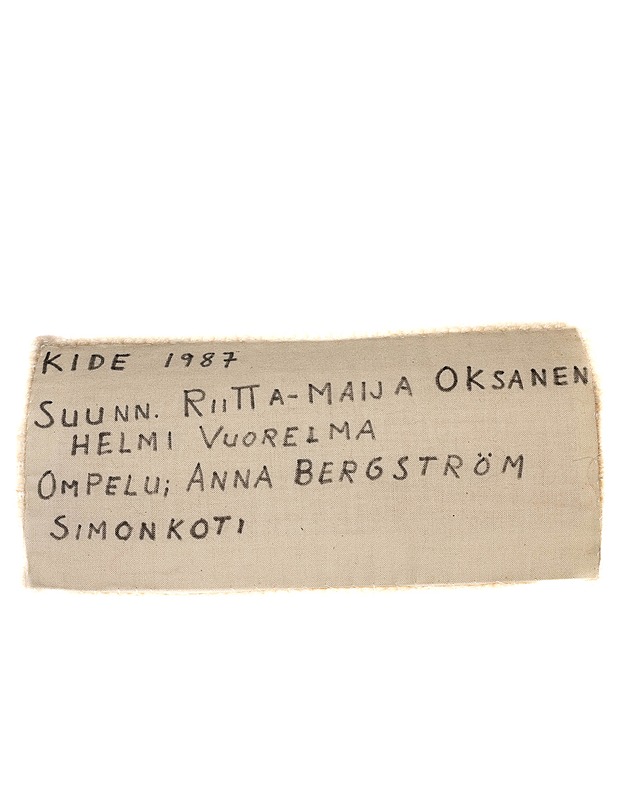 KIDE 1987
SUUNN. RIITTA-MAIJA OKSANEN
HELMI VUORELMA
OMPELU; ANNA BERGSTRÖM
SIMONKOTI